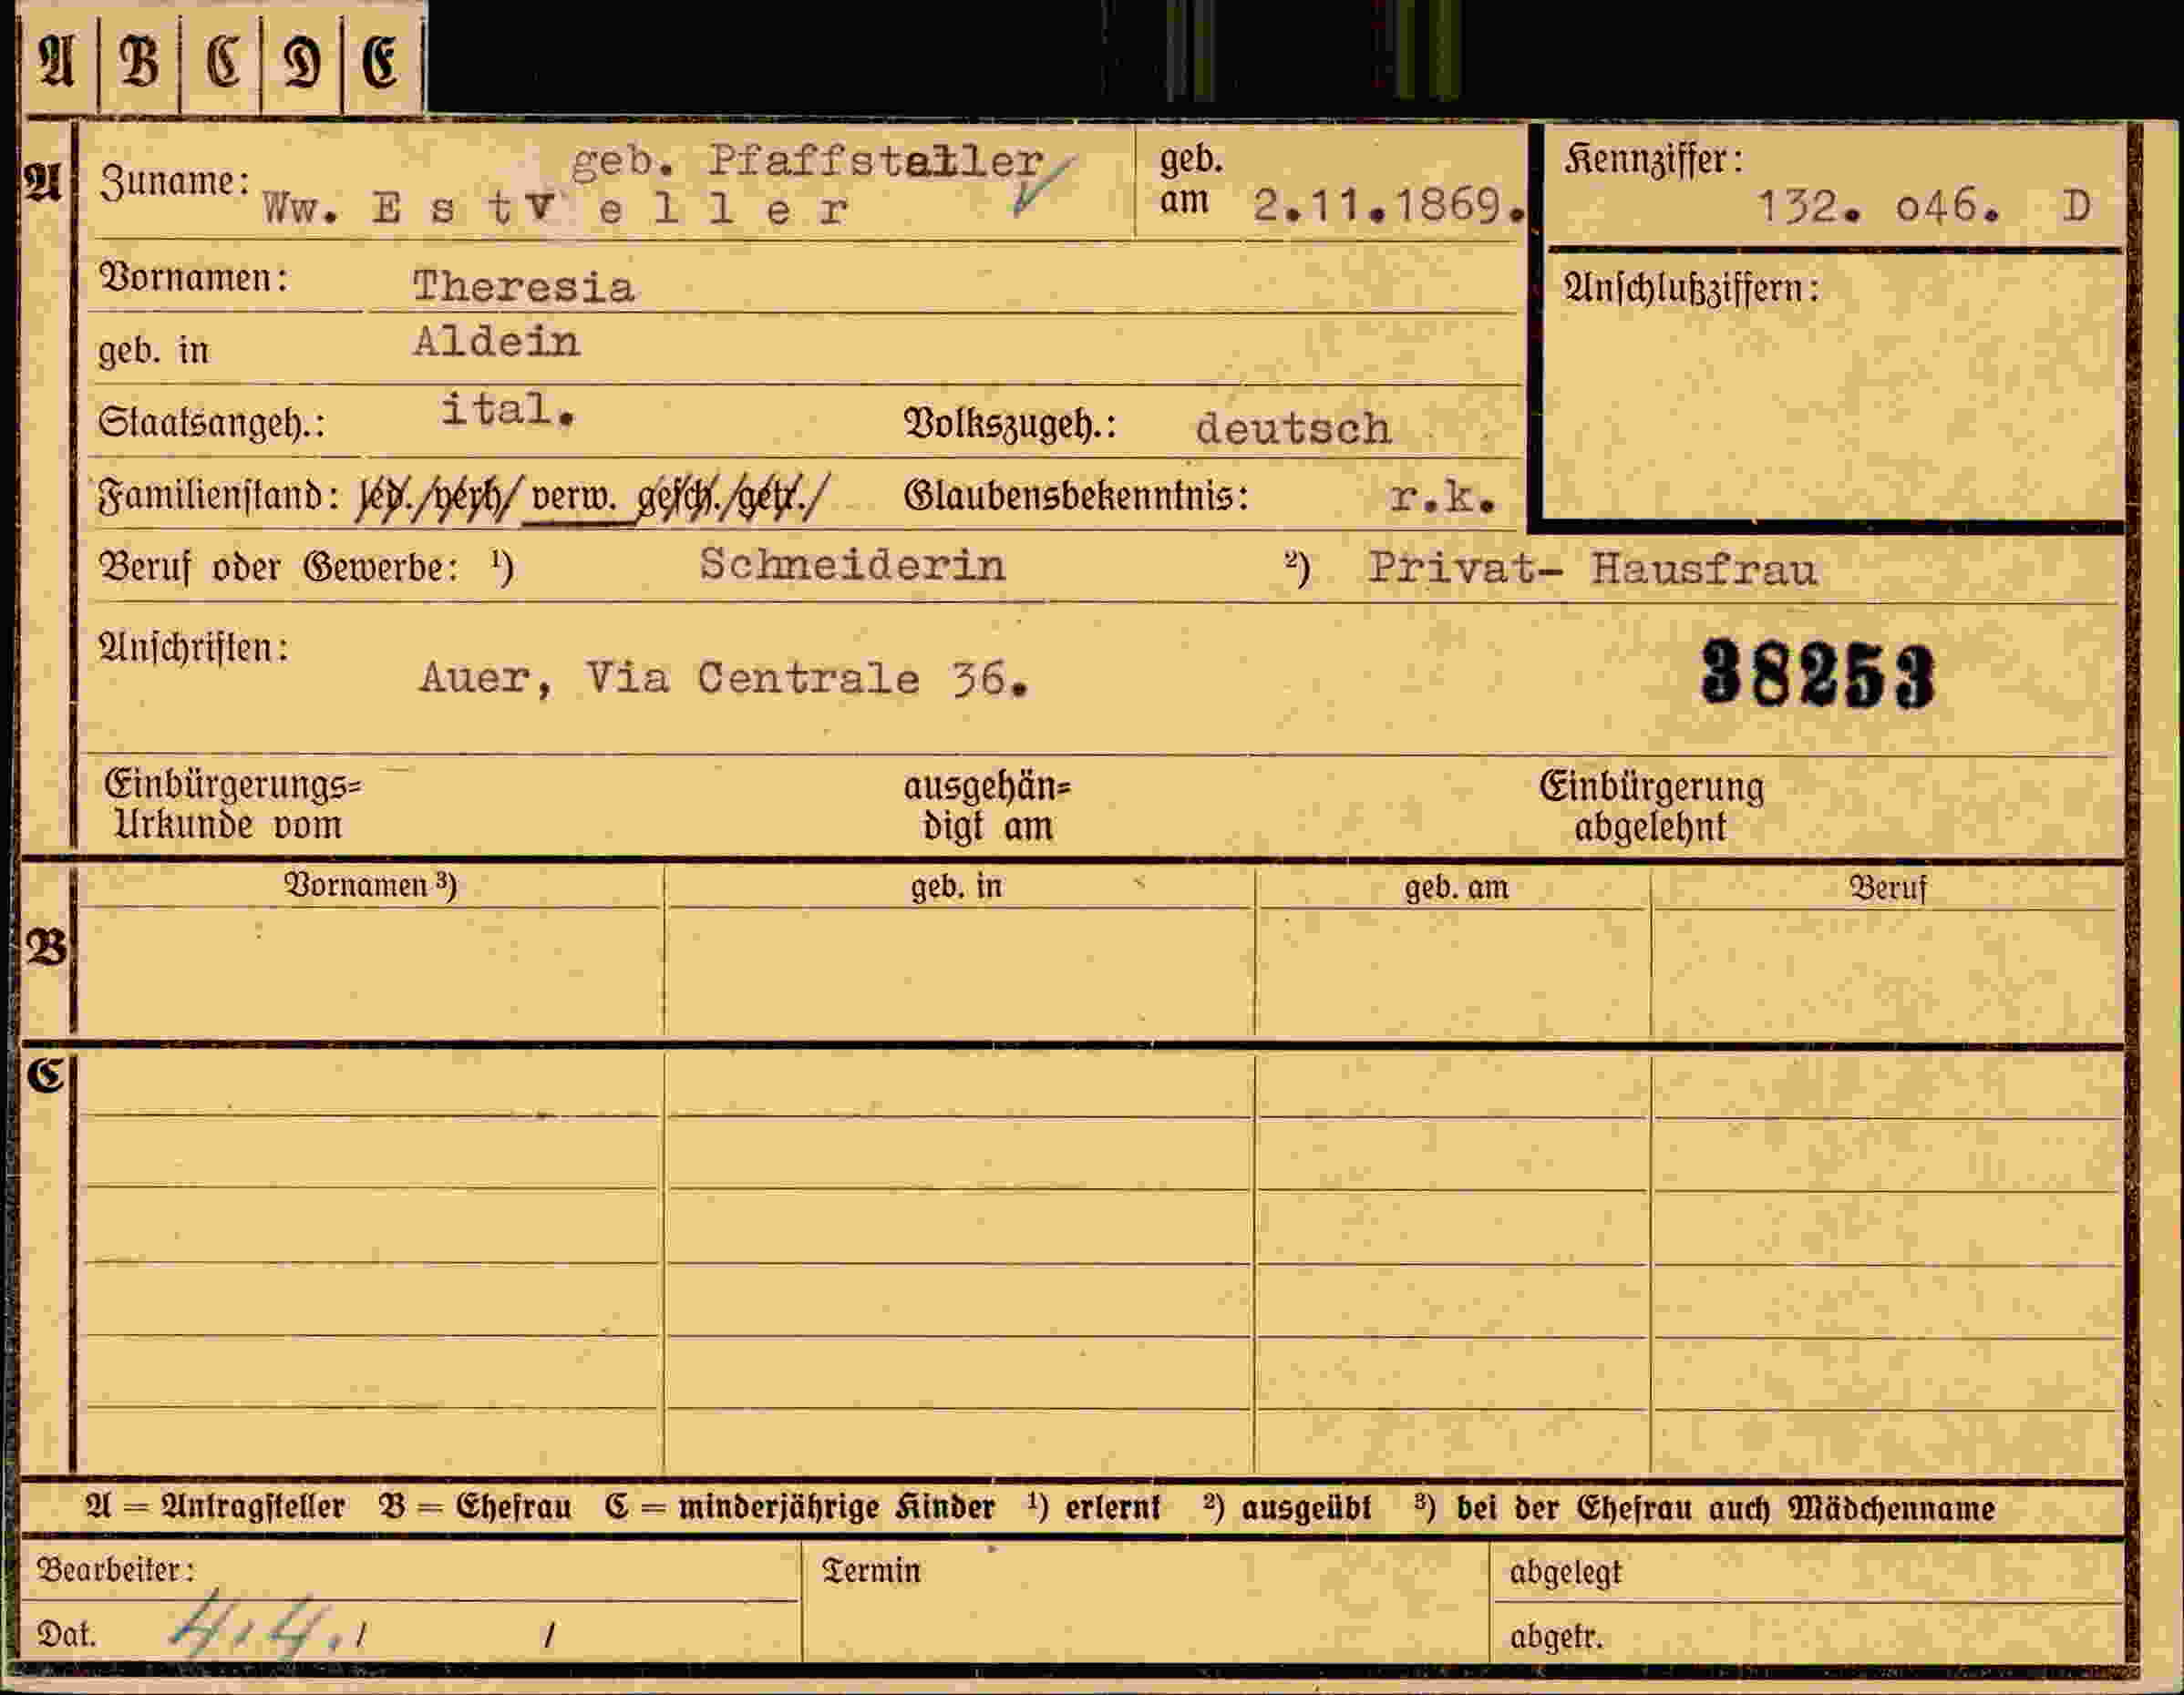 A B C D E
A Zuname: geb. Pfaffstaller
Ww. E s t v e l l e r
geb. am 2.11.1869.
Kennziffer:
132. o46. D
Vornamen: Theresia
Anschlußziffern:
geb. in Aldein
Staatsangeh.: ital. Volkszugeh.: deutsch
Familienstand: led./verh/ verw. gesch./getr./ Glaubensbekenntnis: r.k.
Beruf oder Gewerbe: ¹) Schneiderin ²) Privat- Hausfrau
Anschriften:
Auer, Via Centrale 36.
38253
Einbürgerungs= ausgehän= Einbürgerung
Urkunde vom digt am abgelehnt
Vornamen ³) geb. in geb. am Beruf
B
C
A = Antragsteller B = Ehefrau C = minderjährige Kinder ¹) erlernt ²) ausgeübt ³) bei der Ehefrau auch Mädchenname
Bearbeiter: Termin abgelegt
Dat. 4.4. / / abgetr.